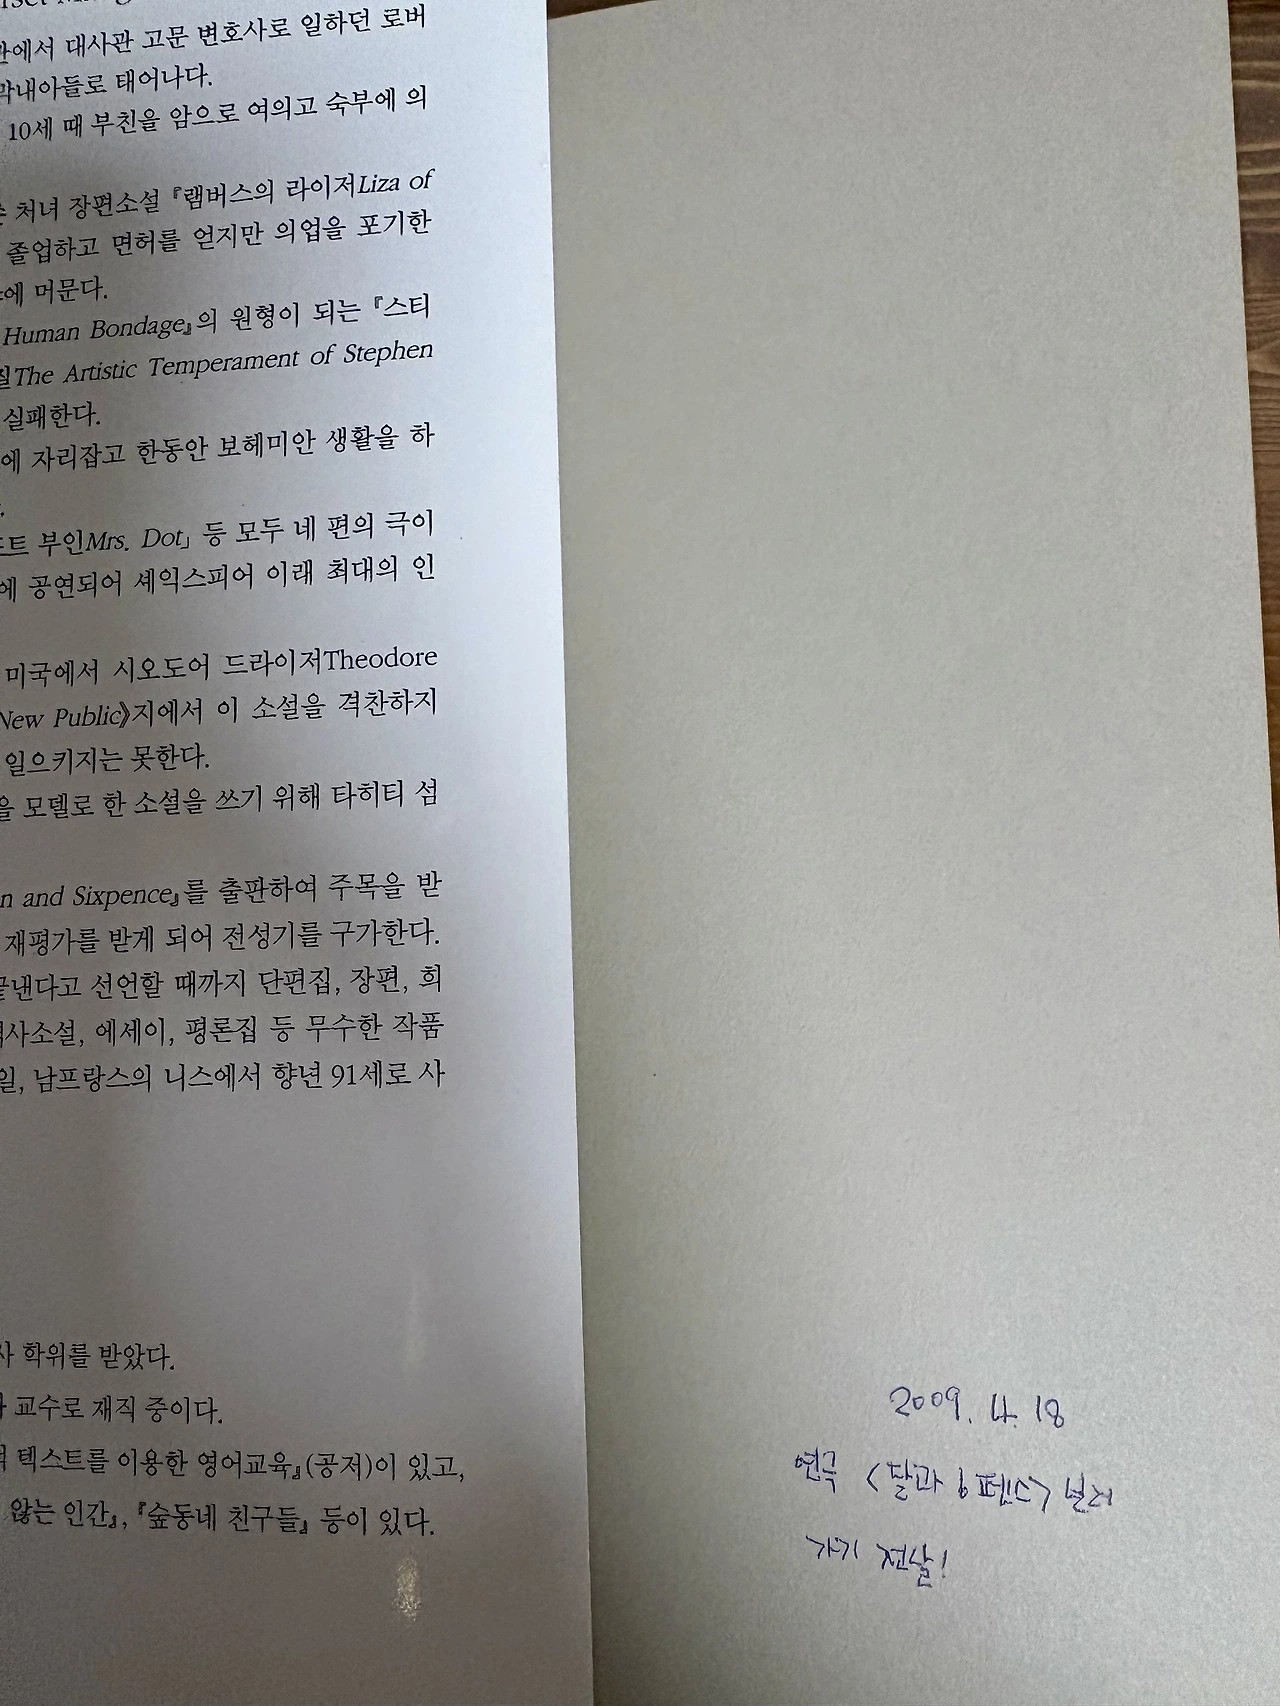 관에서 대사관 고문 변호사로 일하던 로버
막내아들로 태어나다.
10세 때 부친을 암으로 여의고 숙부에 의
처녀 장편소설 『램버스의 라이저Liza of
졸업하고 면허를 얻지만 의업을 포기한
에 머문다.
Human Bondage』의 원형이 되는 『스티
질The Artistic Temperament of Stephen
실패한다.
에 자리잡고 한동안 보헤미안 생활을 하
도트 부인Mrs. Dot」 등 모두 네 편의 극이
에 공연되어 셰익스피어 이래 최대의 인
미국에서 시오도어 드라이저Theodore
New Public》지에서 이 소설을 격찬하지
일으키지는 못한다.
을 모델로 한 소설을 쓰기 위해 타히티 섬
n and Sixpence』를 출판하여 주목을 받
재평가를 받게 되어 전성기를 구가한다.
끝낸다고 선언할 때까지 단편집, 장편, 희
역사소설, 에세이, 평론집 등 무수한 작품
일, 남프랑스의 니스에서 향년 91세로 사
사 학위를 받았다.
교수로 재직 중이다.
텍스트를 이용한 영어교육』(공저)이 있고,
않는 인간』, 『숲동네 친구들』 등이 있다.
2009. 4. 18
연극 <달과 6펜스> 보러
가기 전날!